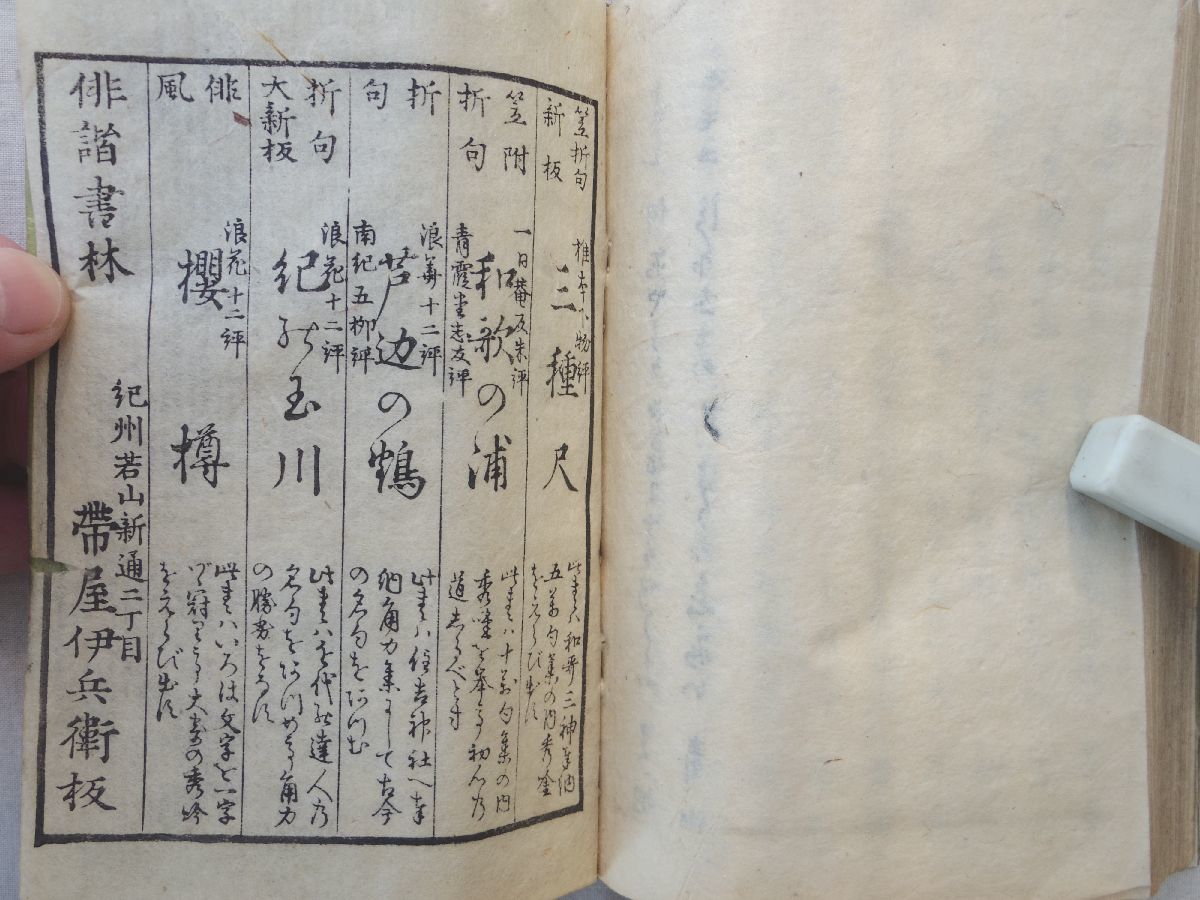 笠折句
新板
椎本下物評
三種尺
此書ハ和哥三神奉納
五万句集の内秀逸
をえらび出す
笠附
折句
一日菴反朱評
青霞堂志友評
和歌の浦
此書ハ十万句集の内
秀吟を挙る初心乃
道しるべとす
折
句
浪華十二評
南紀五柳評
芦辺の鶴
此書ハ住吉神社へ奉
納角力集にして古今
の名句をあつむ
折句
大新板
浪花十二評
紀の玉川
此書ハ近代の達人乃
名句をあつめたる角力
の勝劣をしるす
俳
風
浪花十二評
櫻樽
此書ハいろは文字を一字
づゝ冠りたる大寄の秀吟
をえらび出す
俳諧書林
紀州若山新通二丁目
帶屋伊兵衛板